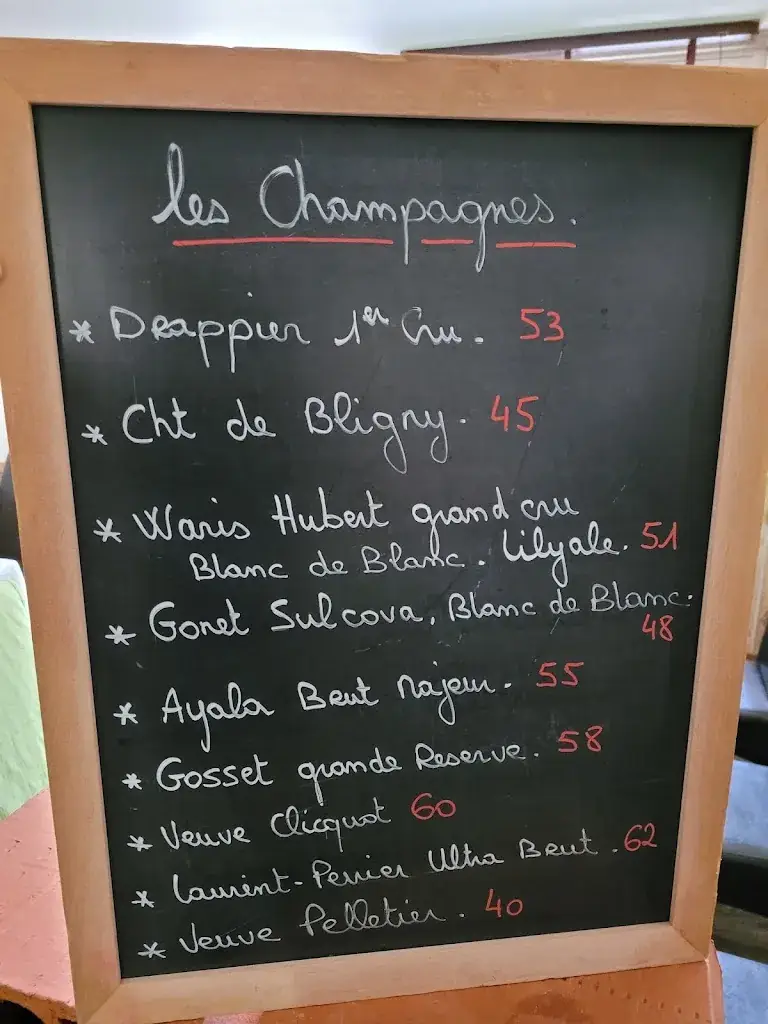 les Champagnes.
* Drappier 1er Cru. 53
* Cht de Bligny. 45
* Waris Hubert grand cru
Blanc de Blanc. Lilyale. 51
* Gonet Sulcova, Blanc de Blanc.
48
* Ayala Brut Majeur. 55
* Gosset grande Reserve. 58
* Veuve Clicquot 60
* Laurent-Perrier Ultra Brut. 62
* Veuve Pelletier. 40